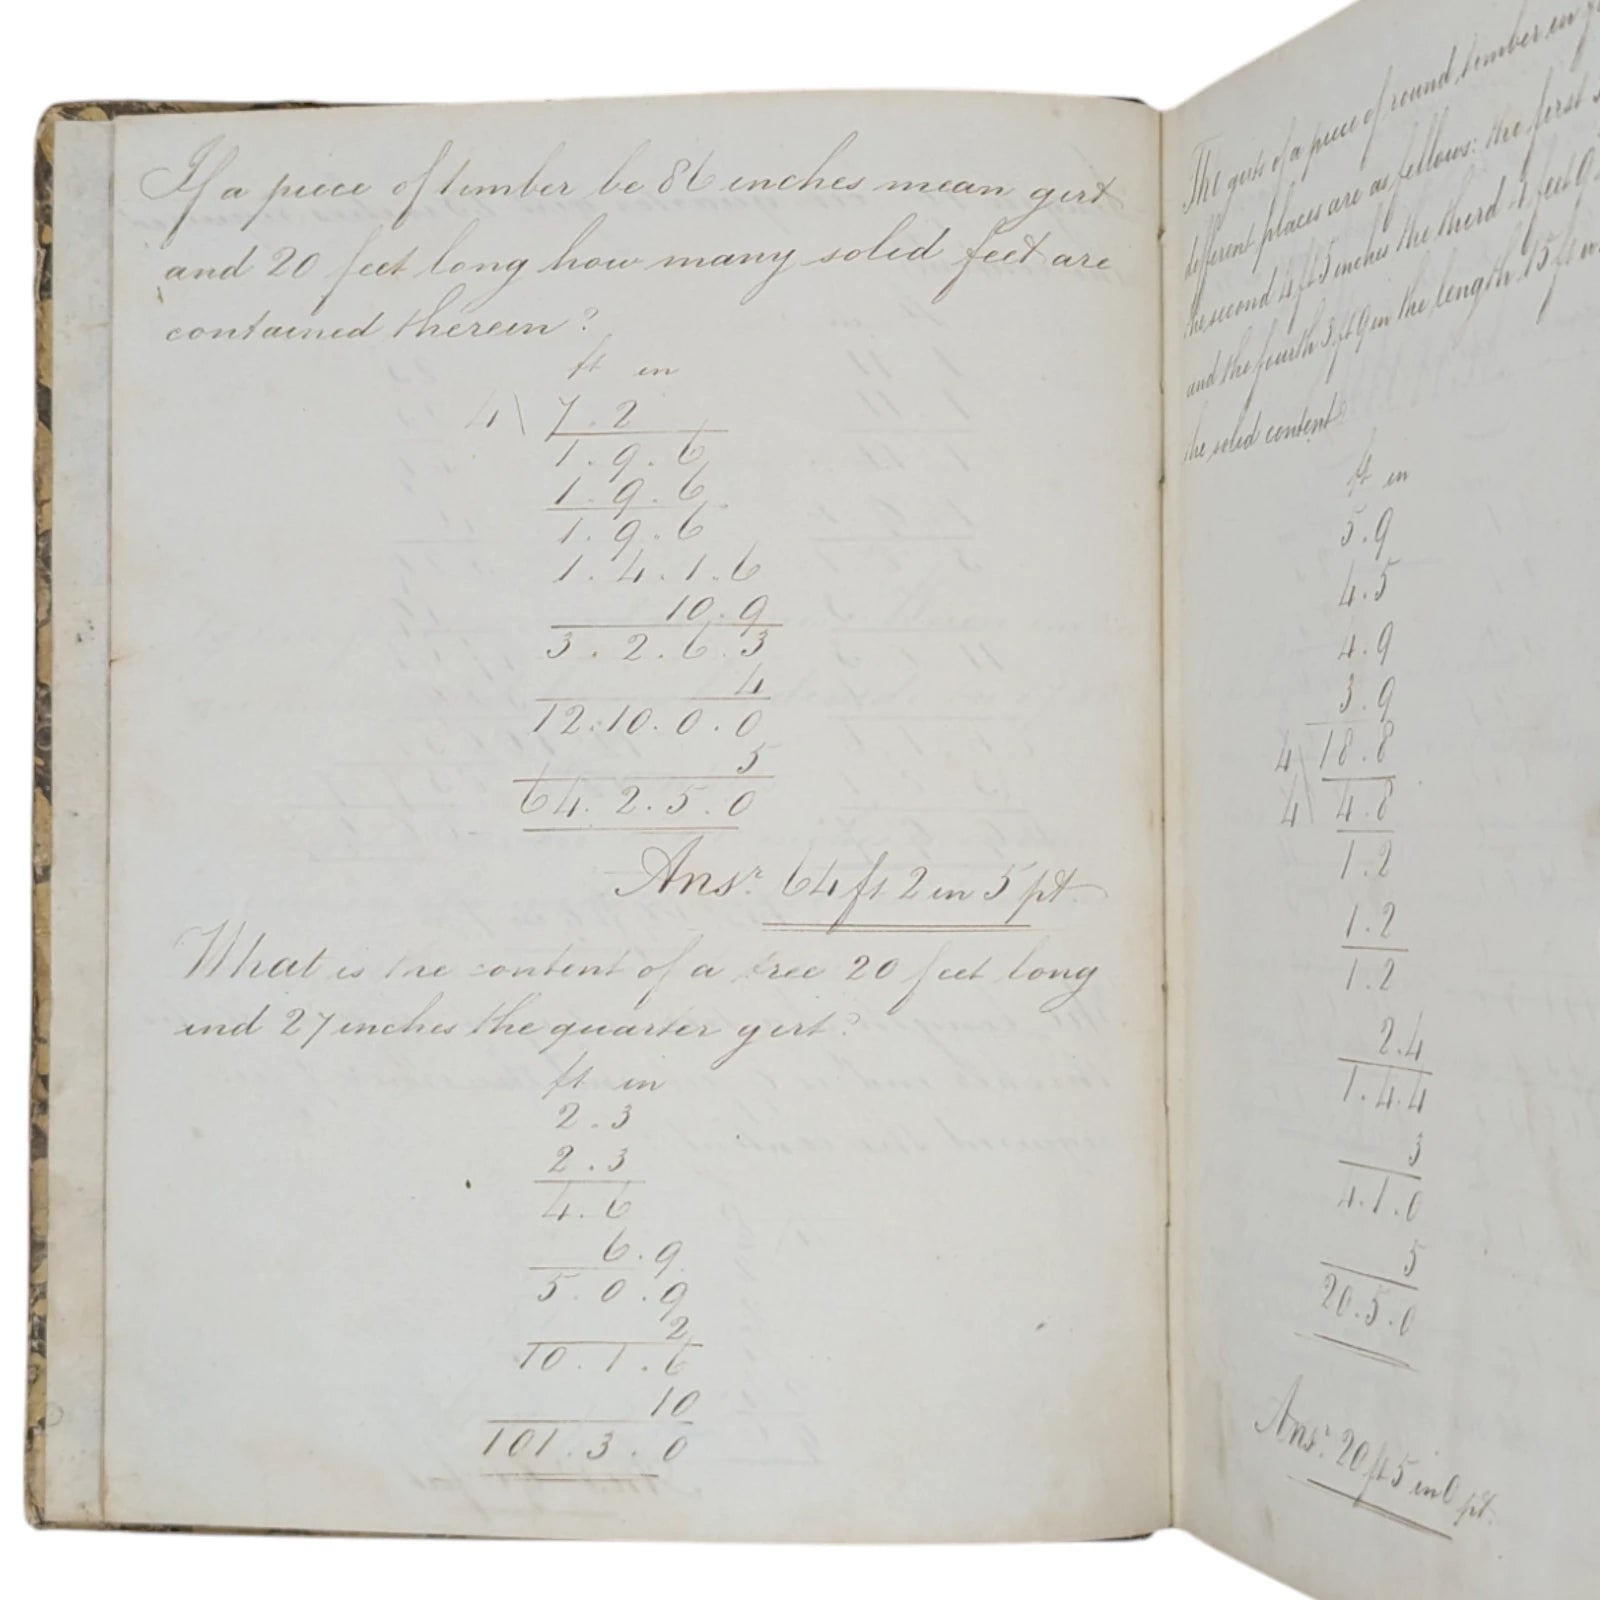 If a piece of timber be 86 inches mean girt
and 20 feet long how many solid feet are
contained therein?
ft in
4 \ 7.2
1.9.6
1.9.6
1.9.6
1.4.1.6
10.9
3.2.6.3
4
12.10.0.0
5
64.2.5.0
Ansr. 64 ft 2 in 5 pt
What is the content of a tree 20 feet long
and 27 inches the quarter girt?
ft in
2.3
2.3
4.6
6.9
5.0.9
2
10.1.6
10
101.3.0
The girts of a piece of round timber in
different places are as follows: the first
the second 4 ft 5 inches the therd 4 feet 9
and the fourth 3 ft 9 in the length 15 ft
the solid content
ft in
5.9
4.5
4.9
3.9
4 \ 18.8
4 \ 4.8
1.2
1.2
1.2
2.4
1.4.4
3
4.1.0
5
20.5.0
Ansr. 20 ft 5 in 0 pt.